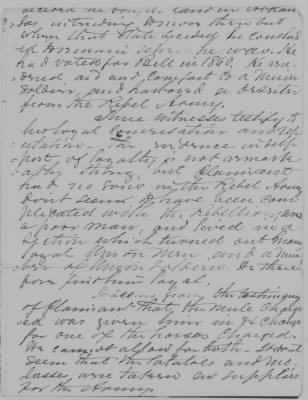 record he bought land in Arkan-
sas, intending to move there but
when that State seceded he continu-
ed to remain where he was. He
had voted for Bell in 1860. He ren-
dered aid and comfort to a Union
Soldier, and harbored a deserter
from the Rebel Army.
Three witnesses testify to
his loyal conversation and rep-
utation. The evidence in sup-
port of loyalty is not remark-
ably strong, but Claimant
had no sons in the Rebel Army
Don't seem to have been com-
plicated with the Rebellion, was
a poor man, and lived in a
section which turned out many
loyal Union men, and a num-
ber of Union Soldiers. We there-
fore find him loyal.
It seems from the testimony
of Claimant that the mule charg-
ed was given him in exchange
for one of the horses charged.
We cannot allow for both. It don't
seem that the Potatoes and Mo-
lasses were taken as supplies
for the Army.